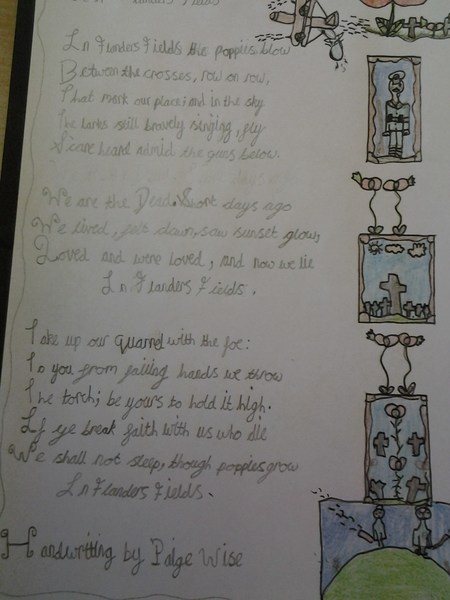 Flanders Fields
In Flanders Fields the poppies blow
Between the crosses, row on row,
That mark our place; and in the sky
The larks still bravely singing, fly
Scare heard admid the guns below.
We are the Dead. Short days ago
We lived, felt dawn, saw sunset glow,
Loved and were loved, and now we lie
In Flanders Fields.
Take up our quarrel with the foe:
To you from failing hands we throw
The torch; be yours to hold it high.
If ye break faith with us who die
We shall not sleep, though poppies grow
In Flanders Fields.
Handwritting by Paige Wise